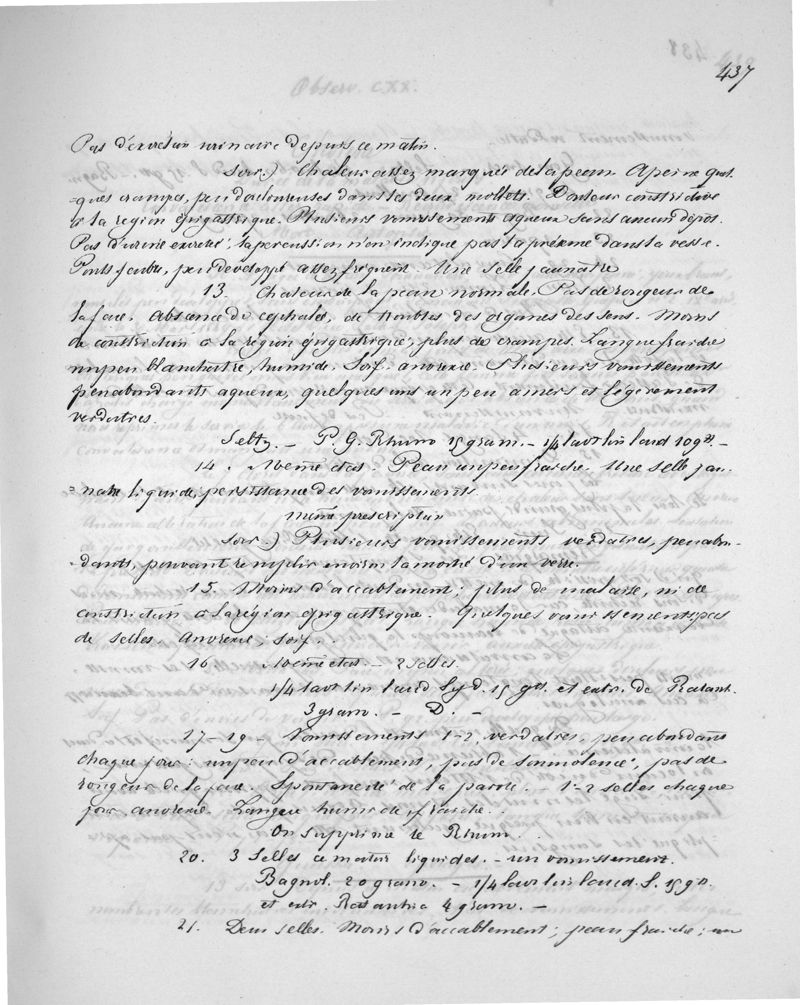 437
Pas d'excrétion urinaire depuis ce matin.
Soir.) Chaleur assez marquée de la peau. A peine quel-
-ques crampes, peu douloureuses dans les deux mollets. Douleur constrictive
à la région épigastrique. Plusieurs vomissements aqueux sans aucun dépôt.
Pas d'urine excrétée; la percussion n'en indique pas la présence dans la vessie.
Pouls faible, peu développé assez fréquent. Une selle jaunâtre
13. Chaleur de la peau normale. Pas de rougeur de
la face. Absence de céphalée, de troubles des organes des sens. Moins
de constriction à la région épigastrique, plus de crampes. Langue fraiche
un peu blanchâtre, humide. Soif. anorexie. Plusieurs vomissements
peu abondants aqueux, quelques uns un peu amers et légèrement
verdatres.
Seltz. - P. G. Rhum 15 gram. - 1/4 lavt lin laud 10 gtt. -
14. Même état. Peau un peu fraiche. Une selle jau-
-natre liquide, persistance des vomissements
même prescription
Soir.) Plusieurs vomissements verdatres, peu abon-
-dants, pouvant remplir environ la moitié d'un verre.
15. Moins d'accablement; plus de malaise, ni de
constriction à la région épigastrique. Quelques vomissements, pas
de selles. Anorexie, soif.
16. Même état. - 2 selles.
1/4 lavt lin laud Syd. 15 gtt. et extr. de Ratanh.
3 gram. - D. -
17 - 19 - Vomissements 1-2, verdatres, peu abondants
chaque jour: un peu d'accablement, pas de somnolence, pas de
rougeur de la face. Spontaneité de la parole. - 1-2 selles chaque
jour, anorexie. Langue humide, fraiche.
On supprime le Rhum.
20. 3 Selles ce matin liquides. - un vomissement.
Bagnol. 20 gram. - 1/4 lavt lin laud. S. 15 gtt.
et extr. Ratanhia 4 gram. -
21. Deux selles. Moins d'accablement; peau fraiche; un